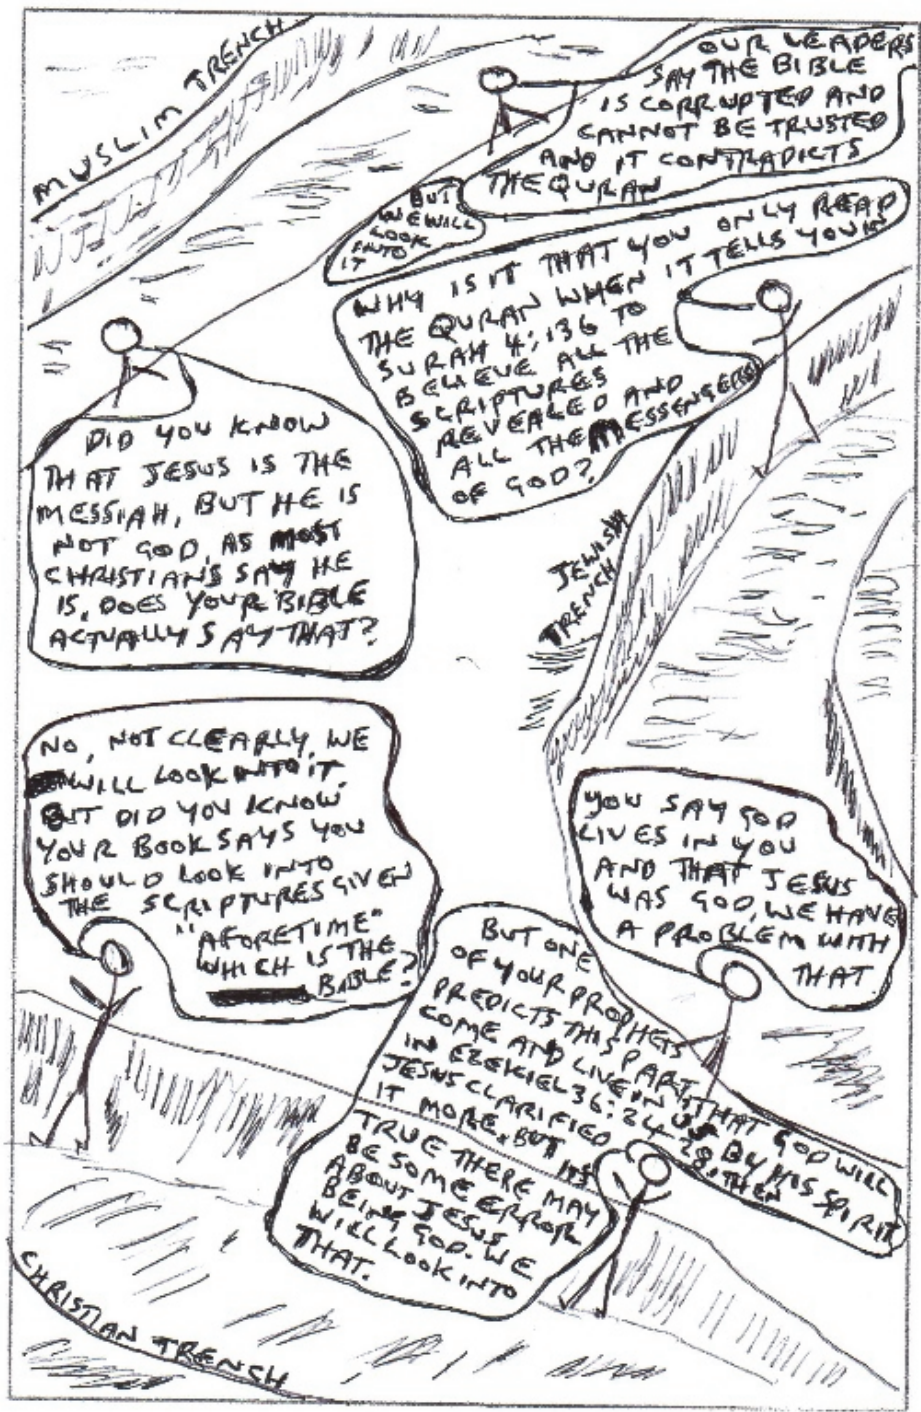 MUSLIM TRENCH
OUR LEADERS
SAY THE BIBLE
IS CORRUPTED AND
CANNOT BE TRUSTED
AND IT CONTRADICTS
THE QURAN
BUT
WE WILL
LOOK
INTO
IT
WHY IS IT THAT YOU ONLY READ
THE QURAN WHEN IT TELLS YOU IN
SURAH 4:136 TO
BELIEVE ALL THE
SCRIPTURES
REVEALED AND
ALL THE MESSENGERS
OF GOD?
DID YOU KNOW
THAT JESUS IS THE
MESSIAH, BUT HE IS
NOT GOD, AS MOST
CHRISTIANS SAY HE
IS, DOES YOUR BIBLE
ACTUALLY SAY THAT?
JEWISH
TRENCH
NO, NOT CLEARLY, WE
WILL LOOK INTO IT.
BUT DID YOU KNOW
YOUR BOOK SAYS YOU
SHOULD LOOK INTO
THE SCRIPTURES GIVEN
"AFORETIME"
WHICH IS THE
BIBLE?
YOU SAY GOD
LIVES IN YOU
AND THAT JESUS
WAS GOD, WE HAVE
A PROBLEM WITH
THAT
BUT ONE
OF YOUR PROPHETS
PREDICTS THIS PART, THAT GOD WILL
COME AND LIVE IN US BY HIS SPIRIT
IN EZEKIEL 36:24-28, THEN
JESUS CLARIFIED
IT MORE, BUT ITS
TRUE THERE MAY
BE SOME ERROR
ABOUT JESUS
BEING GOD. WE
WILL LOOK INTO
THAT.
CHRISTIAN TRENCH